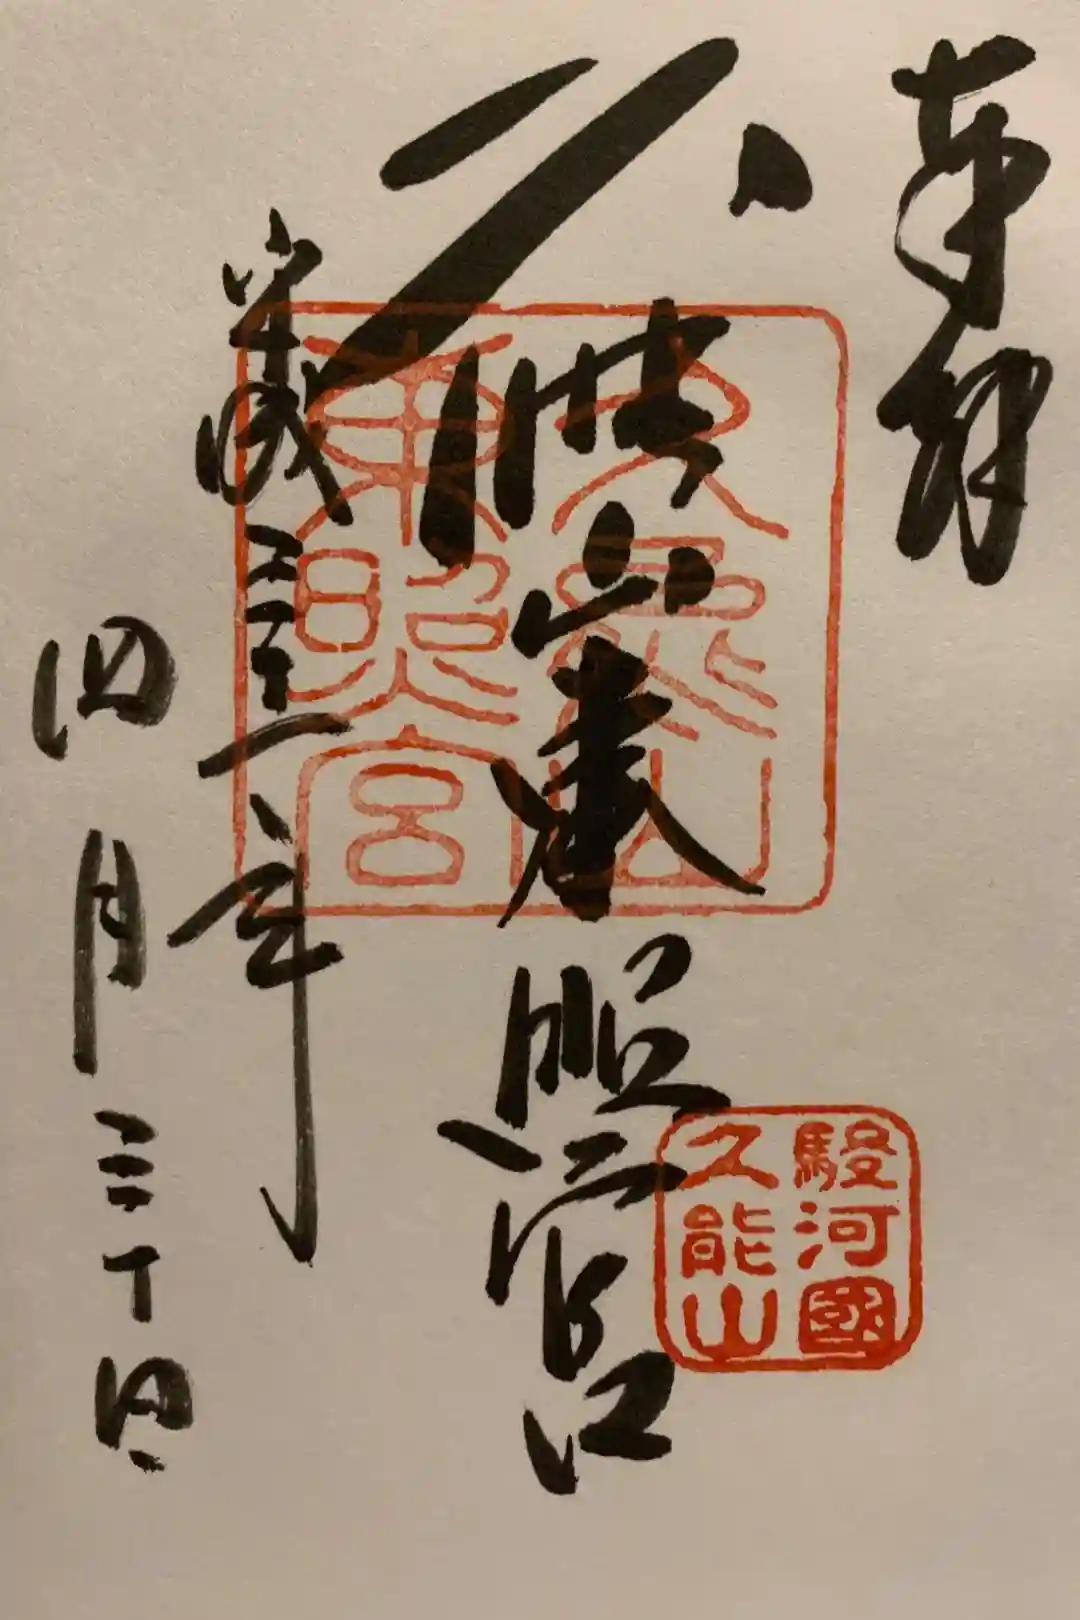 奉拝
久能山東照宮
平成三十一年
四月三十日
久能山
東照宮
駿河國
久能山